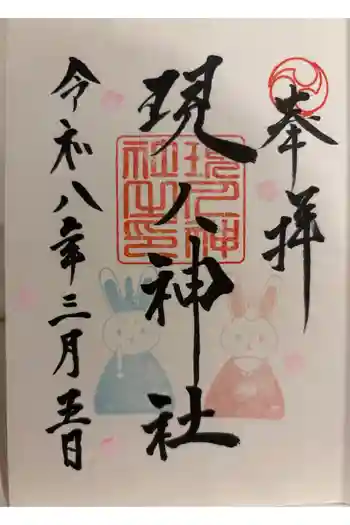 奉拝
現人神社
現人神社之印
令和八年三月五日